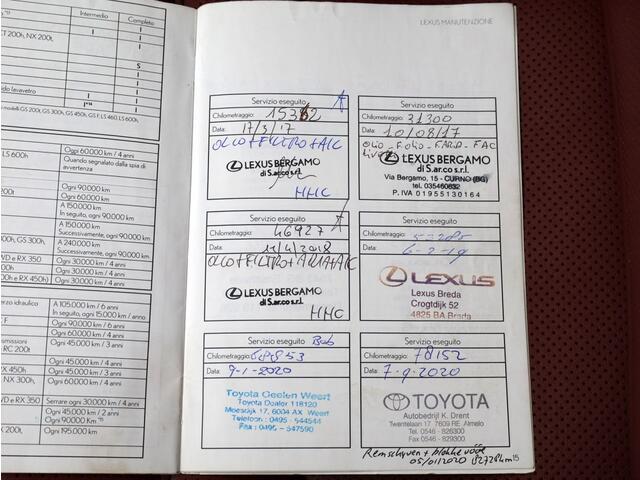 Intermedio Completo
CT 200h, NX 200t, I I
I
I
S
I
I
lavavetro I I
I*¹⁴ I
modelli GS 200t, GS 300h, GS 450h, GS F, LS 460, LS 600h,
Ogni 60.000 km / 4 anni
LS 600h Quando segnalato dalla spia di
avvertenza
Ogni 90.000 km
Ogni 60.000 km
A 150.000 km
In seguito, ogni 90.000 km
A 150.000 km
Successivamente, ogni 90.000 km
GS 300h, A 240.000 km
Successivamente, ogni 90.000 km
VD e RX 350 Ogni 30.000 km / 4 anni
e RX 450h) Ogni 30.000 km / 4 anni
idraulico A 105.000 km / 6 anni
In seguito, ogni 15.000 km / anno
C F Ogni 90.000 km / 6 anni
Ogni 60.000 km / 4 anni
Ogni 45.000 km / 3 anni
RC 200t
Ogni 45.000 km / 3 anni
NX 300h, Ogni 60.000 km / 4 anni
VD e RX 350 Serrare ogni 30.000 km / 4 anni
Ogni 45.000 km / 2 anni
Ogni 90.000 km
200t Ogni 195.000 km
LEXUS MANUTENZIONE
Servizio eseguito
Chilometraggio: 15362
Data: 17/3/17
OLIO+FILTRO+AIC
LEXUS BERGAMO
di S.ar.co s.r.l.
HHC
Servizio eseguito
Chilometraggio: 31300
Data: 10/08/17
OLIO - F.OLIO - F.ARIA - FAC
LEXUS BERGAMO
di S.ar.co s.r.l.
Via Bergamo, 15 - CURNO (BG)
tel. 035460632
P. IVA 01955130164
Servizio eseguito
Chilometraggio: 46927
Data: 11/4/2018
OLIO+FILTRO+ARIA+AIC
LEXUS BERGAMO
di S.ar.co s.r.l.
HHC
Servizio eseguito
Chilometraggio: 53285
Data: 6-2-19
LEXUS
Lexus Breda
Crogtdijk 52
4825 BA Breda
Servizio eseguito
Chilometraggio:
Data: 9-1-2020
Toyota Geelen Weert
Toyota Dealer 118120
Moesdijk 17, 6004 AX Weert
Telefoon : 0495 - 544544
Fax : 0495 - 547590
Servizio eseguito
Chilometraggio: 78152
Data: 7-9-2020
TOYOTA
Autobedrijf K. Drent
Twentelaan 17 7609 RE Almelo
Tel. 0546 - 826300
Fax 0546 - 829300
Remschijven + blokken vóór
05/01/2020 82728km
15